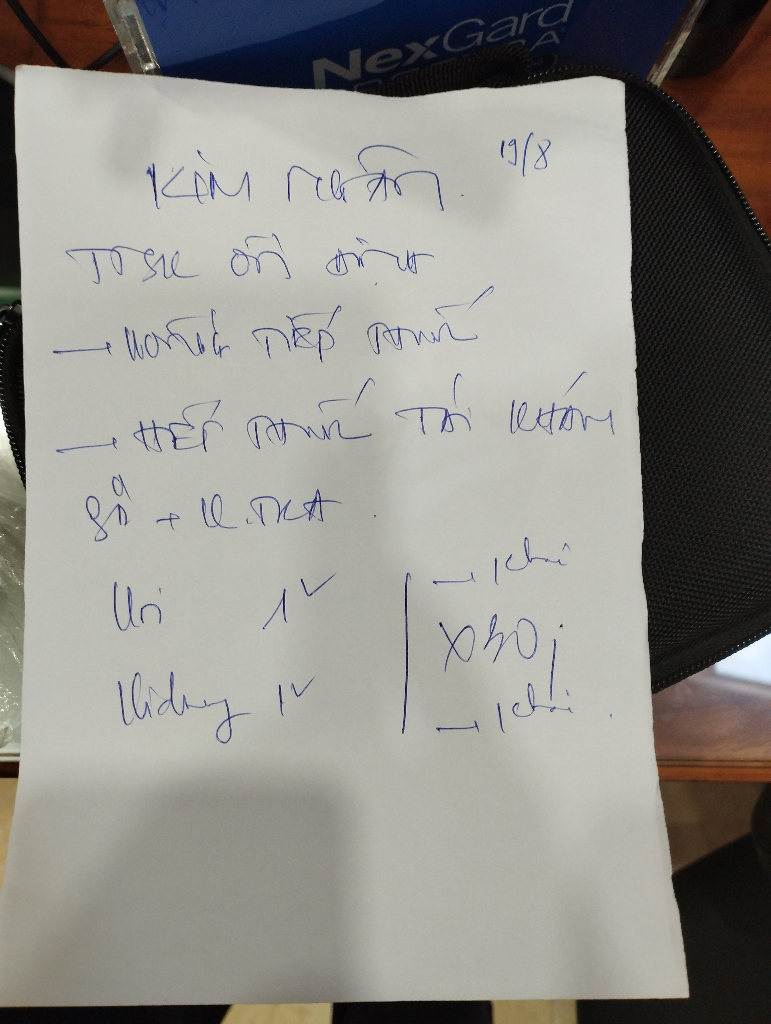 NexGard
19/8
KIM NGÂN.
TTSK ỔN ĐỊNH
→ UỐNG TIẾP THUỐC
→ HẾT THUỐC TÁI KHÁM
SÂ + K.TRA.
Uri 1v
Kidney 1v
→ 1 chai
x50j
→ 1 chai.